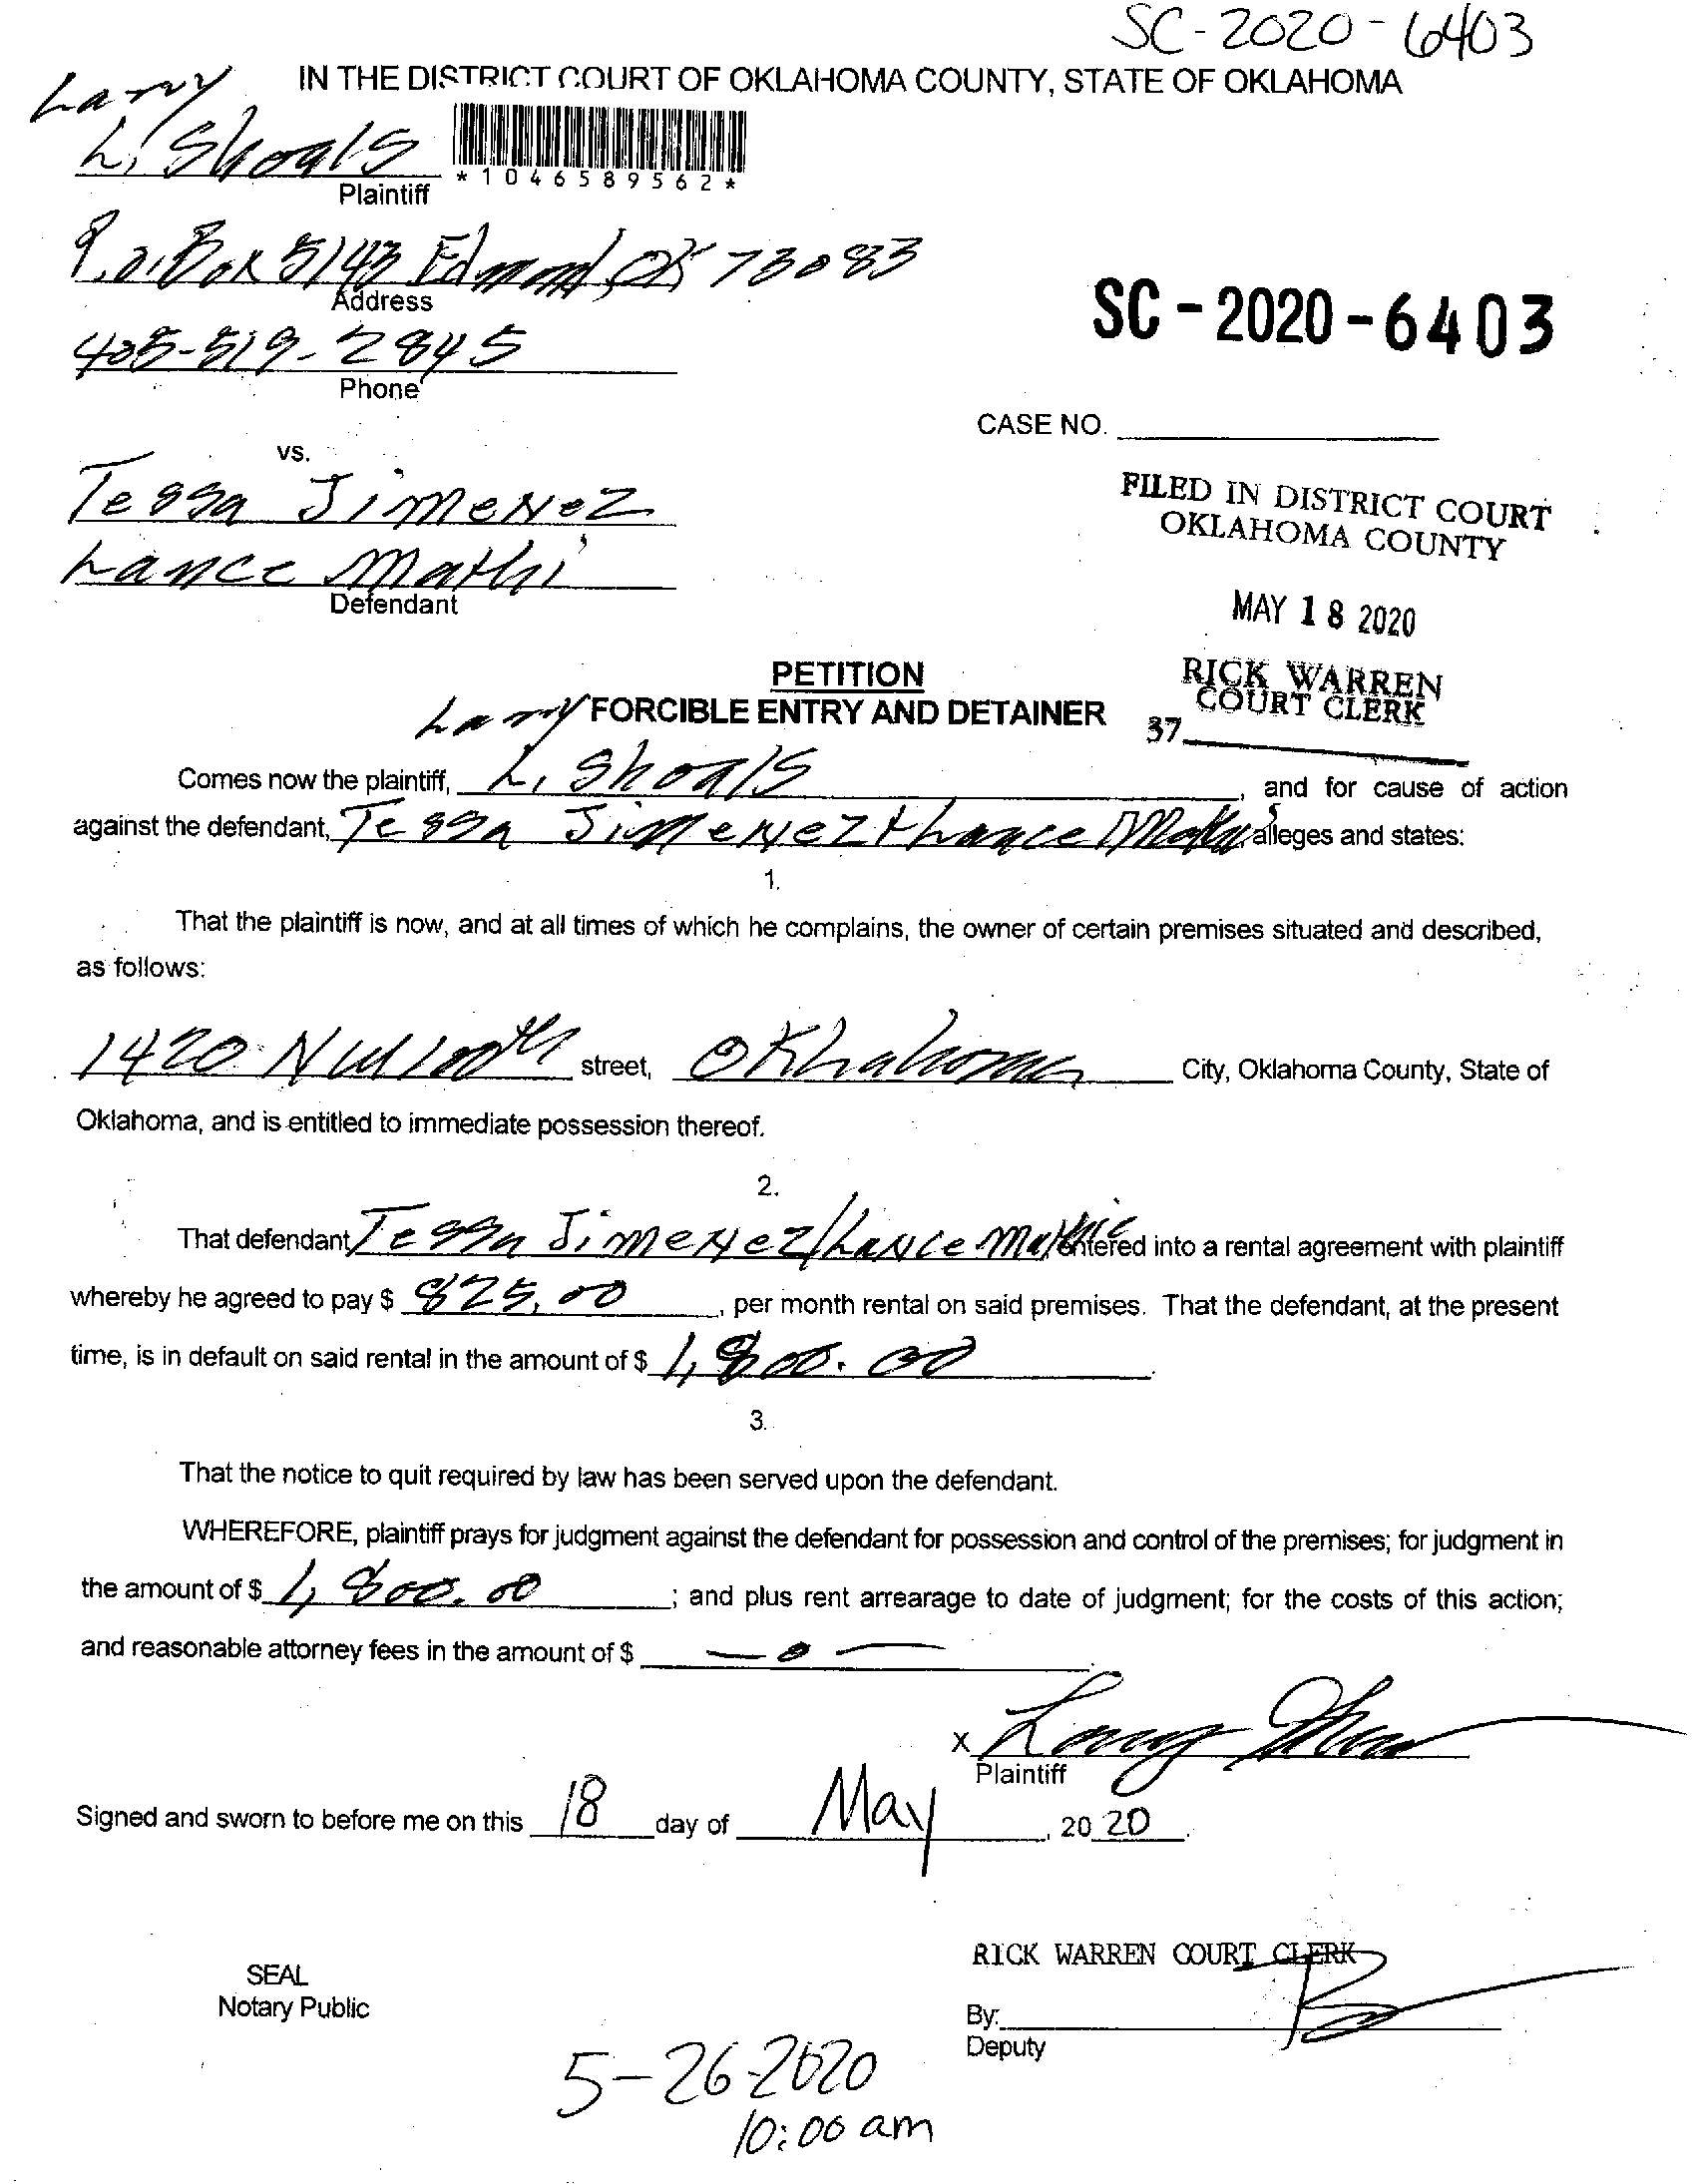 SC-2020-6403
IN THE DISTRICT COURT OF OKLAHOMA COUNTY, STATE OF OKLAHOMA
Larry
L. Shoals
*1046589562*
Plaintiff
P.O. Box 5143 Edmond, OK 73083
Address
SC-2020-6403
405-519-2845
Phone
CASE NO.
vs.
Tessa Jimenez
FILED IN DISTRICT COURT
OKLAHOMA COUNTY
Lance Mathi
Defendant
MAY 18 2020
PETITION
RICK WARREN
COURT CLERK
Larry FORCIBLE ENTRY AND DETAINER
37
Comes now the plaintiff, L. Shoals, and for cause of action
against the defendant, Tessa Jimenez + Lance alleges and states:
1.
That the plaintiff is now, and at all times of which he complains, the owner of certain premises situated and described,
as follows:
1420 NW 100th street, Oklahoma City, Oklahoma County, State of
Oklahoma, and is entitled to immediate possession thereof.
2.
That defendant Tessa Jimenez/Lance entered into a rental agreement with plaintiff
whereby he agreed to pay $ 825.00, per month rental on said premises. That the defendant, at the present
time, is in default on said rental in the amount of $ 1,800.00.
3.
That the notice to quit required by law has been served upon the defendant.
WHEREFORE, plaintiff prays for judgment against the defendant for possession and control of the premises; for judgment in
the amount of $ 1,800.00; and plus rent arrearage to date of judgment; for the costs of this action;
and reasonable attorney fees in the amount of $ —0—.
X
Plaintiff
Signed and sworn to before me on this 18 day of May, 2020.
RICK WARREN COURT CLERK
SEAL
Notary Public
By:
Deputy
5-26-2020
10:00 am